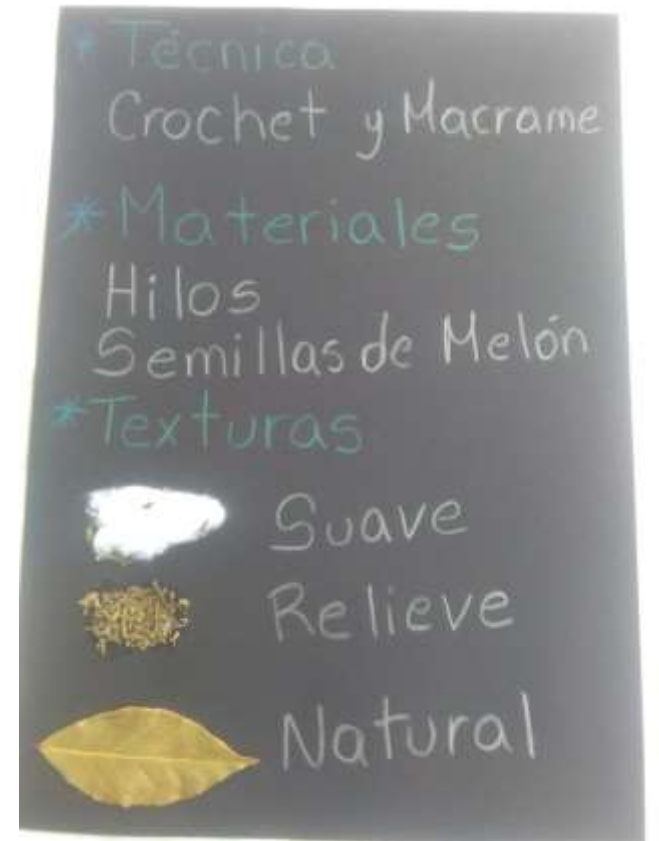 *Técnica
Crochet y Macrame
*Materiales
Hilos
Semillas de Melón
*Texturas
Suave
Relieve
Natural